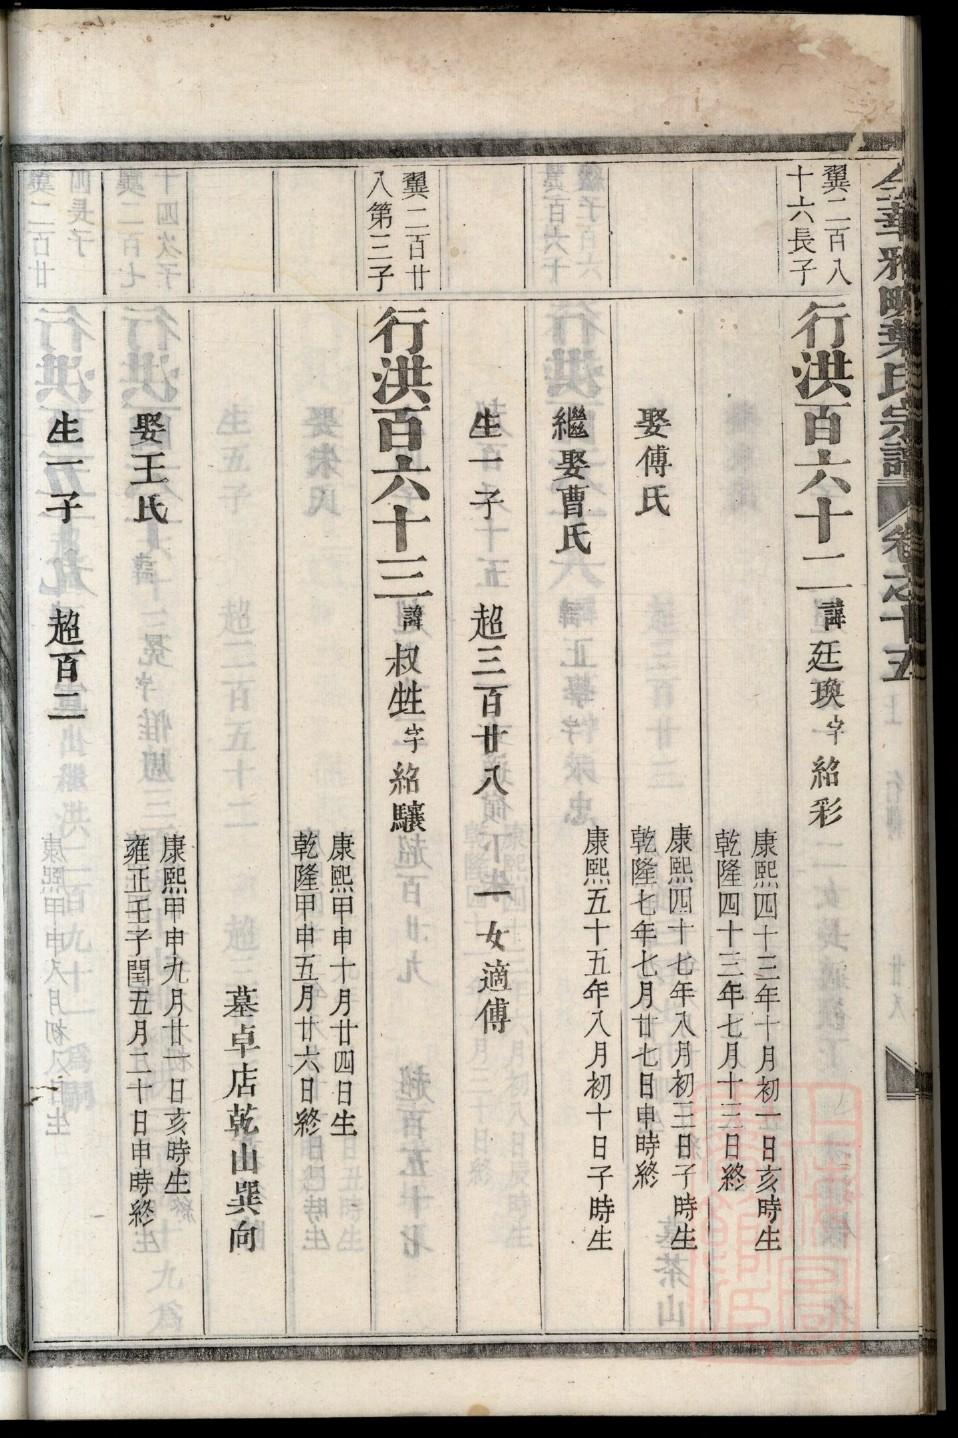 華雅畈葉氏宗譜 卷之十五
翼二百八
十六長子
行洪百六十二諱廷瑍字紹彩
康熙四十三年十月初一日亥時生
乾隆四十三年七月十三日終
娶傅氏
康熙四十七年八月初三日子時生
乾隆七年七月廿七日申時終
繼娶曹氏
康熙五十五年八月初十日子時生
生一子 超三百廿八 一女適傅
翼二百廿
八第三子
行洪百六十三諱叔甡字紹驤
康熙甲申十月廿四日生
乾隆甲申五月廿六日終
墓卓店乾山巽向
娶王氏
康熙甲申九月廿一日亥時生
雍正壬子閏五月二十日申時終
生一子 超百二